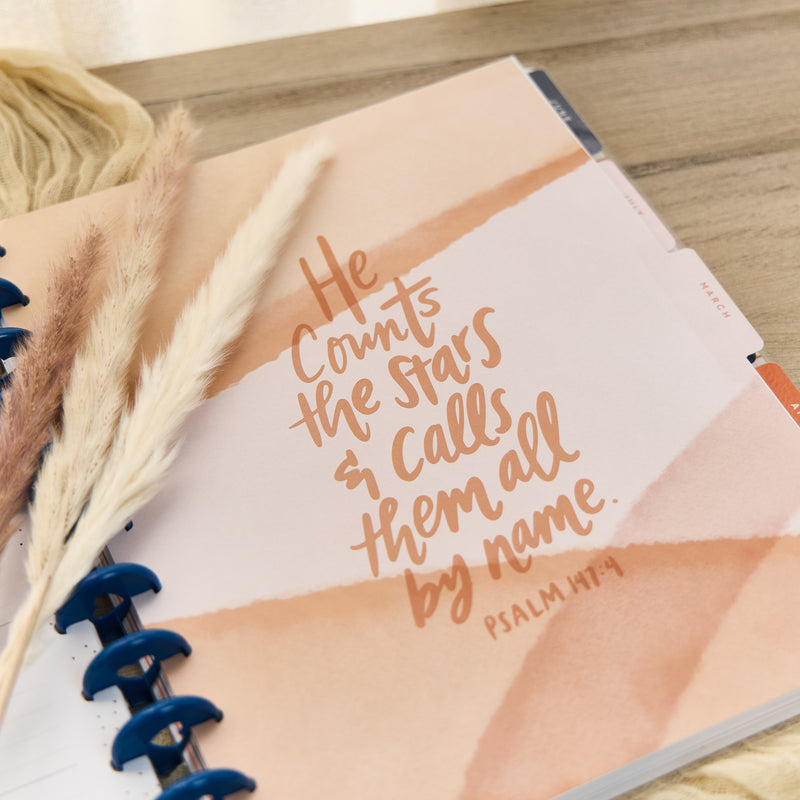 He
Counts
the stars
& calls
them all
by name.
PSALM 147:4
JUNE
JULY
MARCH
A